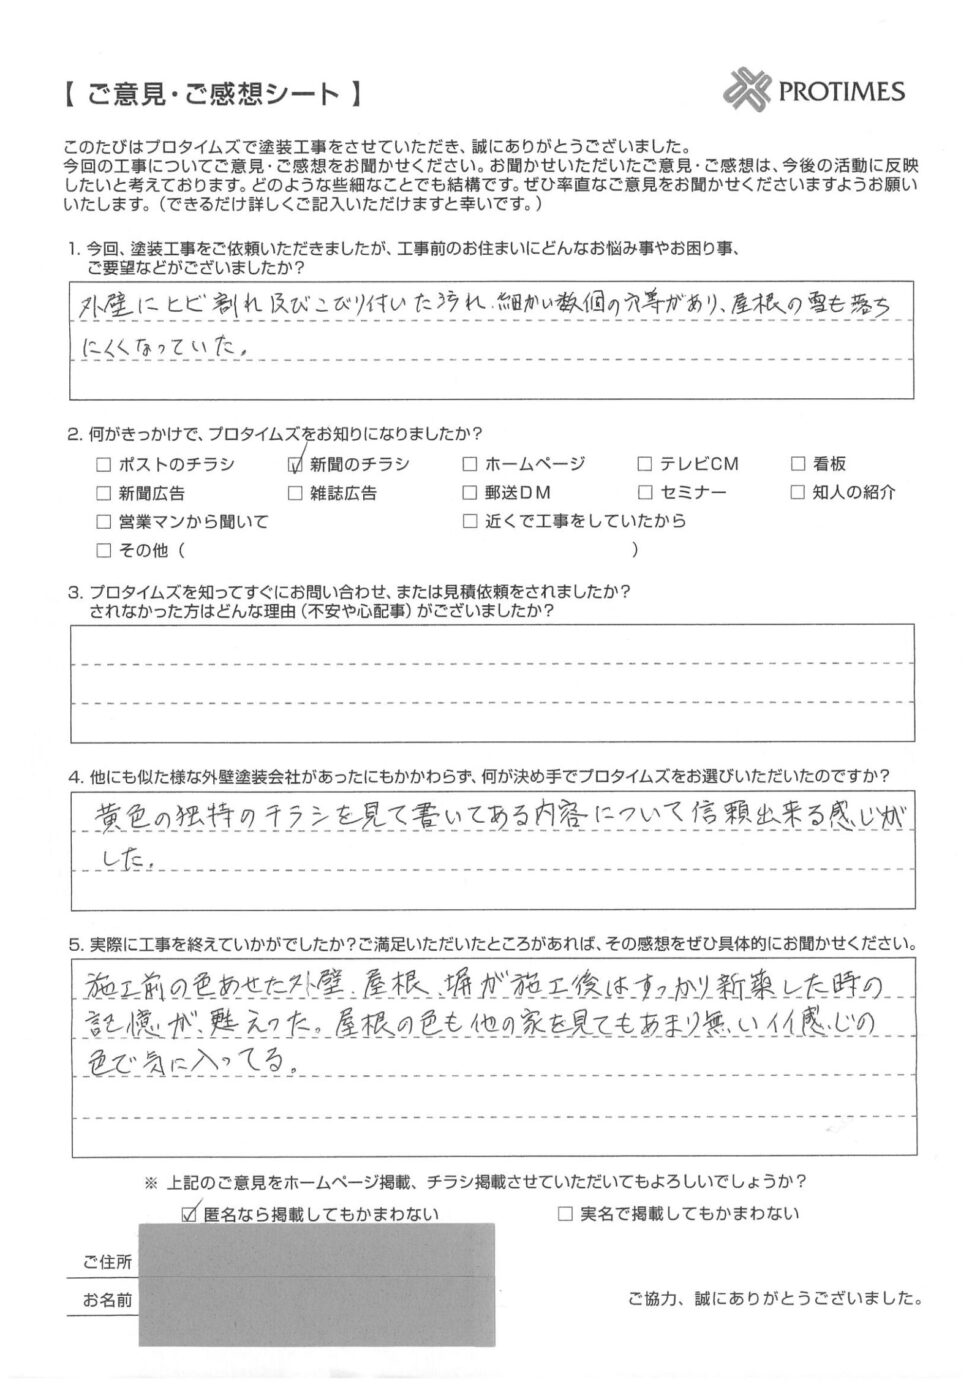 【 ご意見・ご感想シート 】
PROTIMES
このたびはプロタイムズで塗装工事をさせていただき、誠にありがとうございました。
今回の工事についてご意見・ご感想をお聞かせください。お聞かせいただいたご意見・ご感想は、今後の活動に反映
したいと考えております。どのような些細なことでも結構です。ぜひ率直なご意見をお聞かせくださいますようお願い
いたします。（できるだけ詳しくご記入いただけますと幸いです。）
1. 今回、塗装工事をご依頼いただきましたが、工事前のお住まいにどんなお悩み事やお困り事、
ご要望などがございましたか？
外壁にヒビ割れ及びこびり付いた汚れ、細かい数個の穴等があり、屋根の雪も落ち
にくくなっていた。
2. 何がきっかけで、プロタイムズをお知りになりましたか？
□ ポストのチラシ ☑ 新聞のチラシ □ ホームページ □ テレビCM □ 看板
□ 新聞広告 □ 雑誌広告 □ 郵送DM □ セミナー □ 知人の紹介
□ 営業マンから聞いて □ 近くで工事をしていたから
□ その他（ ）
3. プロタイムズを知ってすぐにお問い合わせ、または見積依頼をされましたか？
されなかった方はどんな理由（不安や心配事）がございましたか？
4. 他にも似た様な外壁塗装会社があったにもかかわらず、何が決め手でプロタイムズをお選びいただいたのですか？
黄色の独特のチラシを見て書いてある内容について信頼出来る感じが
した。
5. 実際に工事を終えていかがでしたか？ご満足いただいたところがあれば、その感想をぜひ具体的にお聞かせください。
施工前の色あせた外壁、屋根、塀が施工後はすっかり新築した時の
記憶が、甦えった。屋根の色も他の家を見てもあまり無いイイ感じの
色で気に入ってる。
※ 上記のご意見をホームページ掲載、チラシ掲載させていただいてもよろしいでしょうか？
☑ 匿名なら掲載してもかまわない □ 実名で掲載してもかまわない
ご住所
お名前 ご協力、誠にありがとうございました。